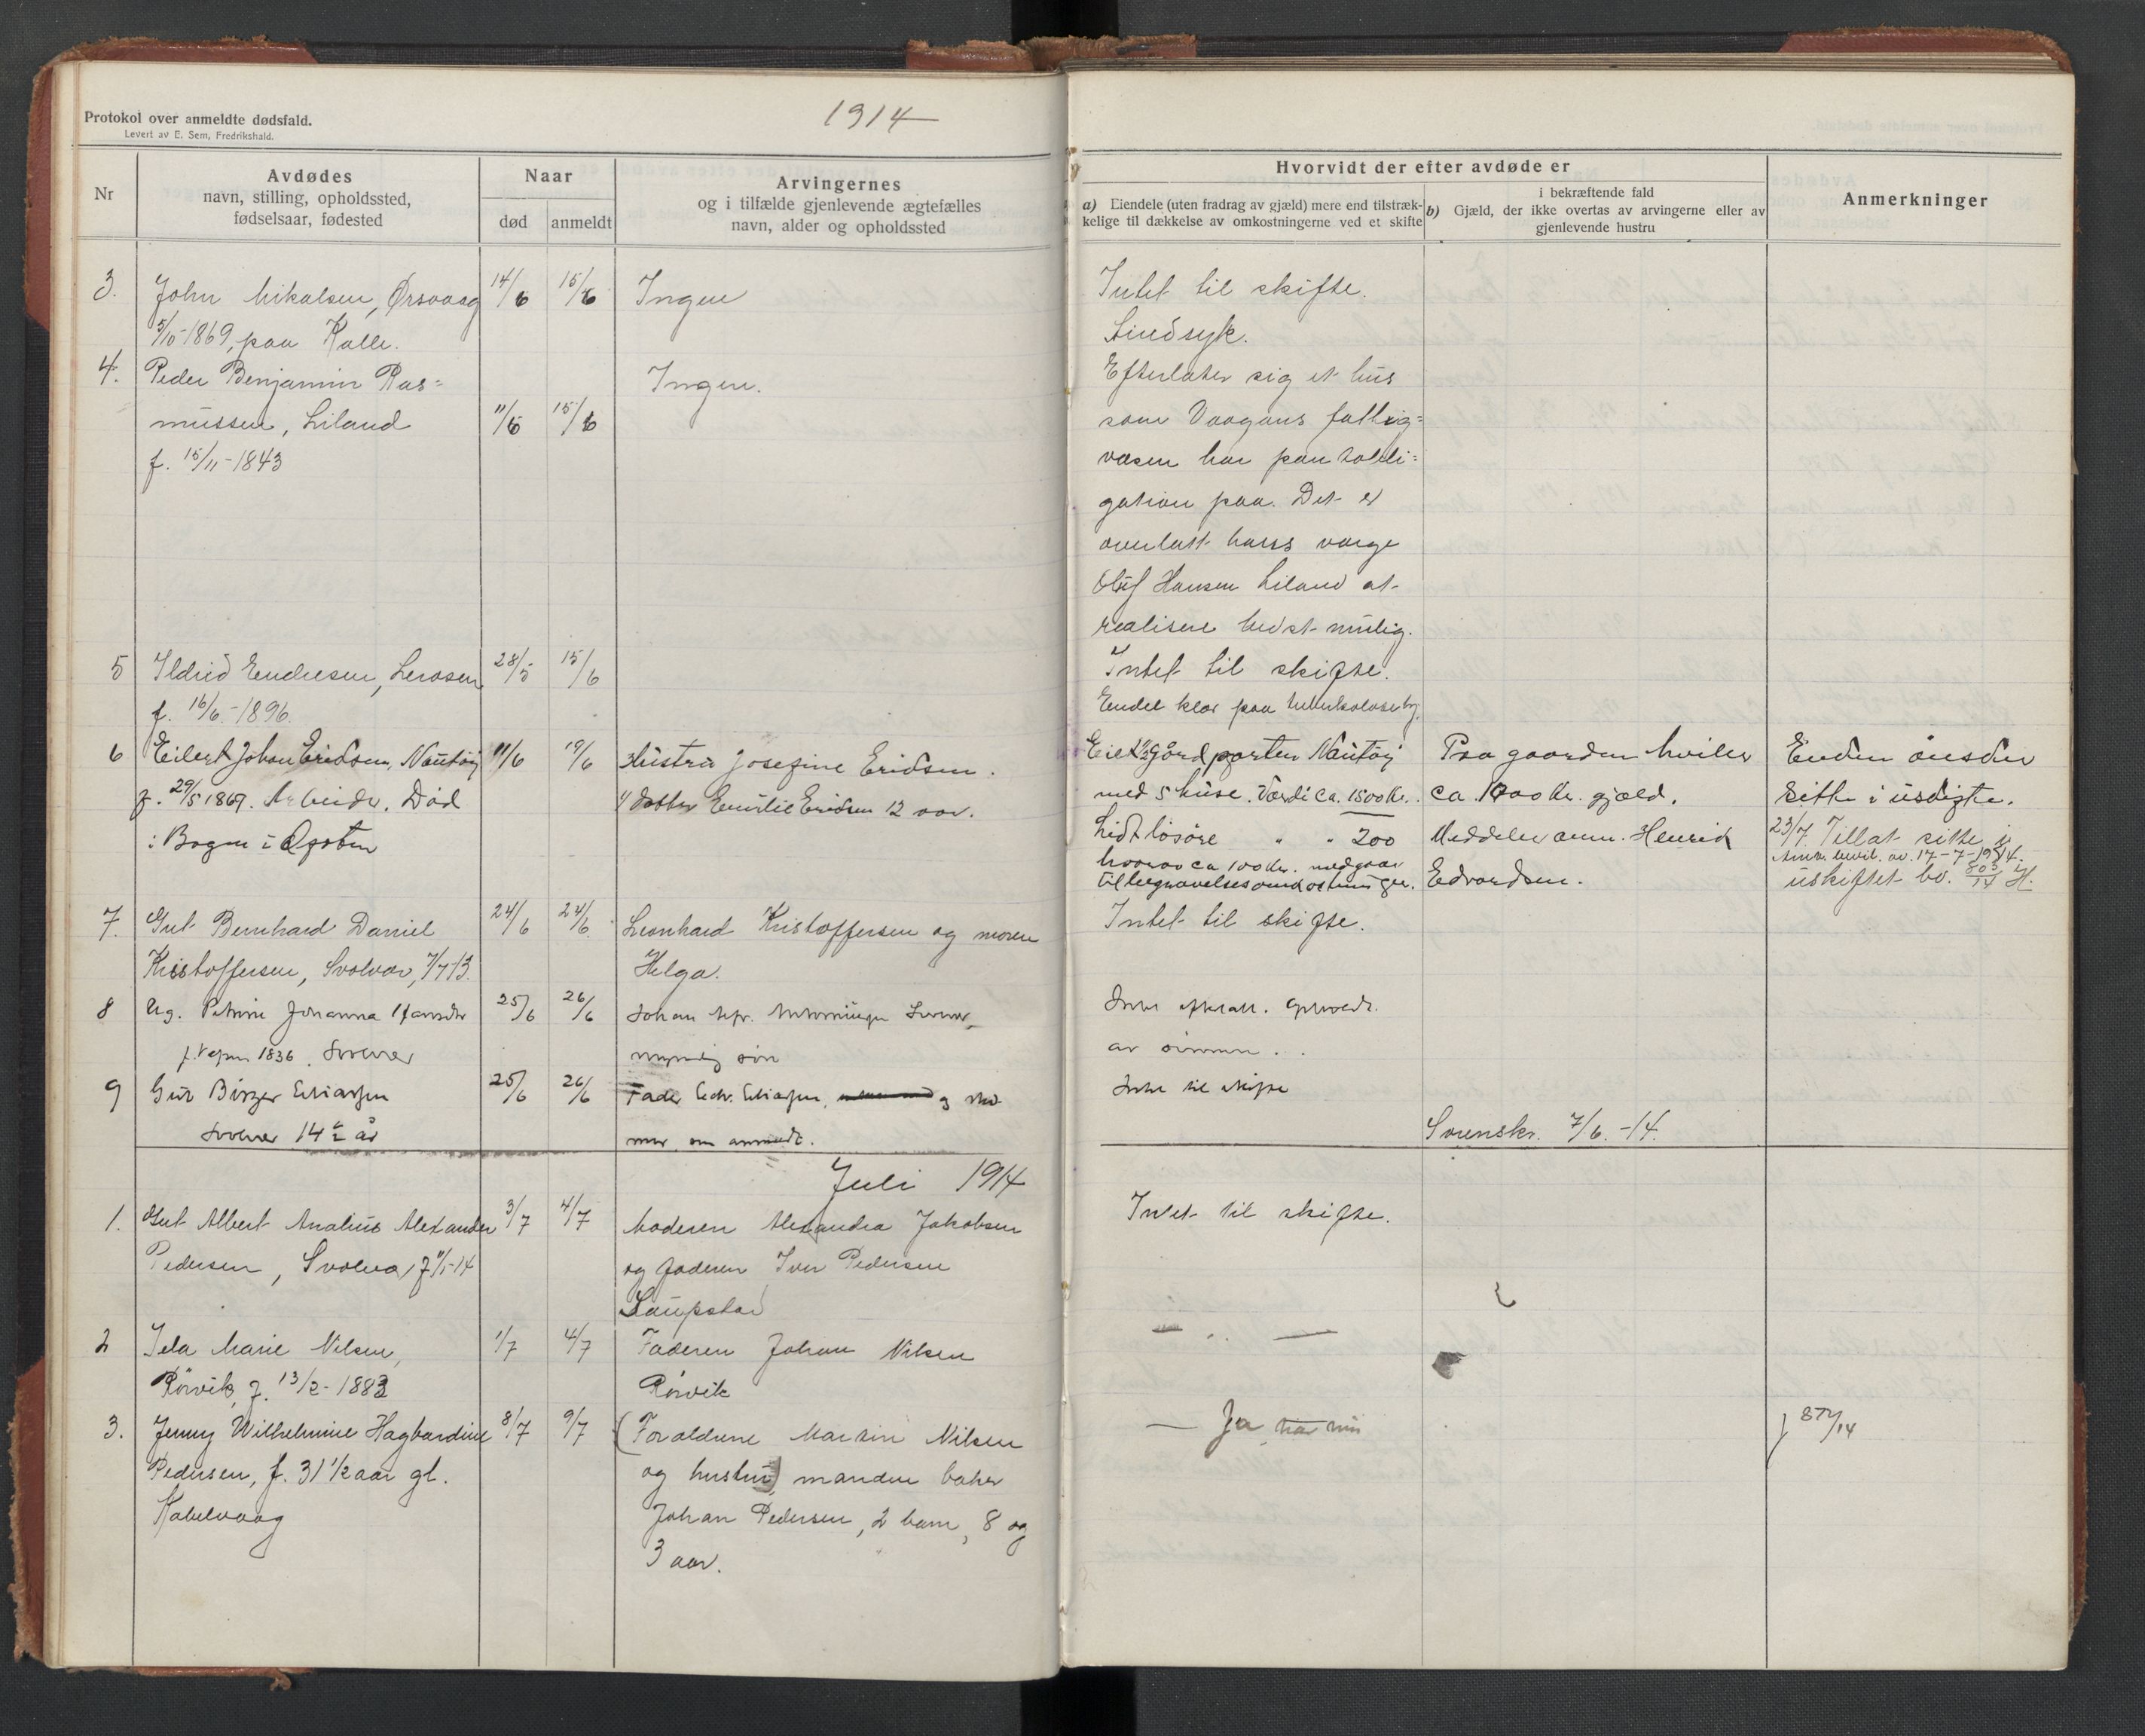 Protokol over anmeldte dødsfald.
Levert av E. Sem, Fredrikshald.
1914
Nr
Avdødes
navn, stilling, opholdssted,
fødselsaar, fødested
Naar
død
anmeldt
Arvingernes
og i tilfælde gjenlevende ægtefælles
navn, alder og opholdssted
3. John Mikalsen, Ørsvaag 14/6 15/6 Ingen
5/10-1869, paa Kalle.
4. Peder Benjamin Ras=
Ingen.
mussen, Liland 11/6 15/6
f. 15/11-1843
5 Ildrid Endresen, 28/5 15/6
f. 16/6-1896.
6 Eilert Johan Eridsen, Nautøy 11/6 19/6 Hustru Josefine Eridsen.
f. 29/5 1869. Arbeider. Død
1 datter Emilie Eridsen 12 aar.
i Bogen i Ofoten
7. Gut Bernhard Daniel 24/6 24/6. Leonhard Kristoffersen og moren
Kristoffersen, Svolvær, 7/7-13.
Helga.
8 Ug. Petrine Johanna Hansdtr 25/6 26/6 Johan
1836. Svolvær
myndig søn
9 Gut Birger Eliassen 25/6 26/6 Fader Edv. Eliassen, og
Svolvær 14 1/2 år
mor, som anmeldt.
Juli 1914
1. Gut Albert Analius Alexander 3/7 4/7 Moderen Alexandra Jakobsen
Pedersen, Svolvær, f 11/5-14
og faderen Iver Pedersen
Laupstad
2 Jela Marie Nilsen, 1/7 4/7 Faderen Johan Nilsen
Rørvik, f. 13/2-1883
Rørvik
3. Jenny Wilhelmine Hagbardine 8/7 9/7 (Forældrene Martin Nilsen
Pedersen, f. 31 1/2 aar gl.
og hustru) manden baker
Kabelvaag
Johan Pedersen, 2 barn, 8 og
3 aar.
Hvorvidt der efter avdøde er
a) Eiendele (uten fradrag av gjæld) mere end tilstræk-
kelige til dækkelse av omkostningerne ved et skifte
i bekræftende fald
b) Gjæld, der ikke overtas av arvingerne eller av
gjenlevende hustru
Anmerkninger
Intet til skifte.
Sindsyk.
Efterlater sig et hus
som Vaagans fattig=
væsen har pantobli=
gation paa. Det er
overlatt hans verge
Oluf Hansen Liland at
realisere bedst mulig.
Intet til skifte.
Endel klær paa tuberkulosehj.
Eiet 1/2 Gård parten Nautøy
med 5 huse. Værdi ca. 1500 Kr.
Lidt løsøre " " 200
hvorav ca 100 Kr. medgaar
til begravelsesomkostninger.
Paa gaarden hviler
ca. 1000 Kr. gjæld.
Meddeler anm. Henrik
Edvardsen.
Enken ønsker
sitte i uskifte.
23/7 Tillat sitte i
Amtm. bevil. av. 17-7-1914.
uskiftet bo. 803/14 H.
Intet til skifte.
Intet efterlatt.
av sønnen.
Intet til skifte
Svenskr. 7/6.-14.
Intet til skifte.
— " —
— Ja har min
J 872/14